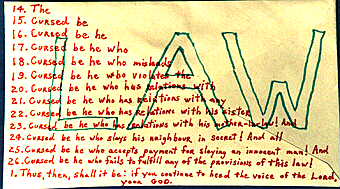 14. The
15. Cursed be
16. Cursed be he
17. Cursed be he who
18. Cursed be he who misleads
19. Cursed be he who violates the
20. Cursed be he who has relations with
21. Cursed be he who has relations with any
22. Cursed be he who has relations with his sister
23. Cursed be he who has relations with his mother-in-law! And
24. Cursed be he who slays his neighbour in secret! And all
25. Cursed be he who accepts payment for slaying an innocent man! And
26. Cursed be he who fails to fulfill any of the provisions of this law!
1. Thus, then, shall it be: if you continue to heed the voice of the Lord,
your GOD.
LAW